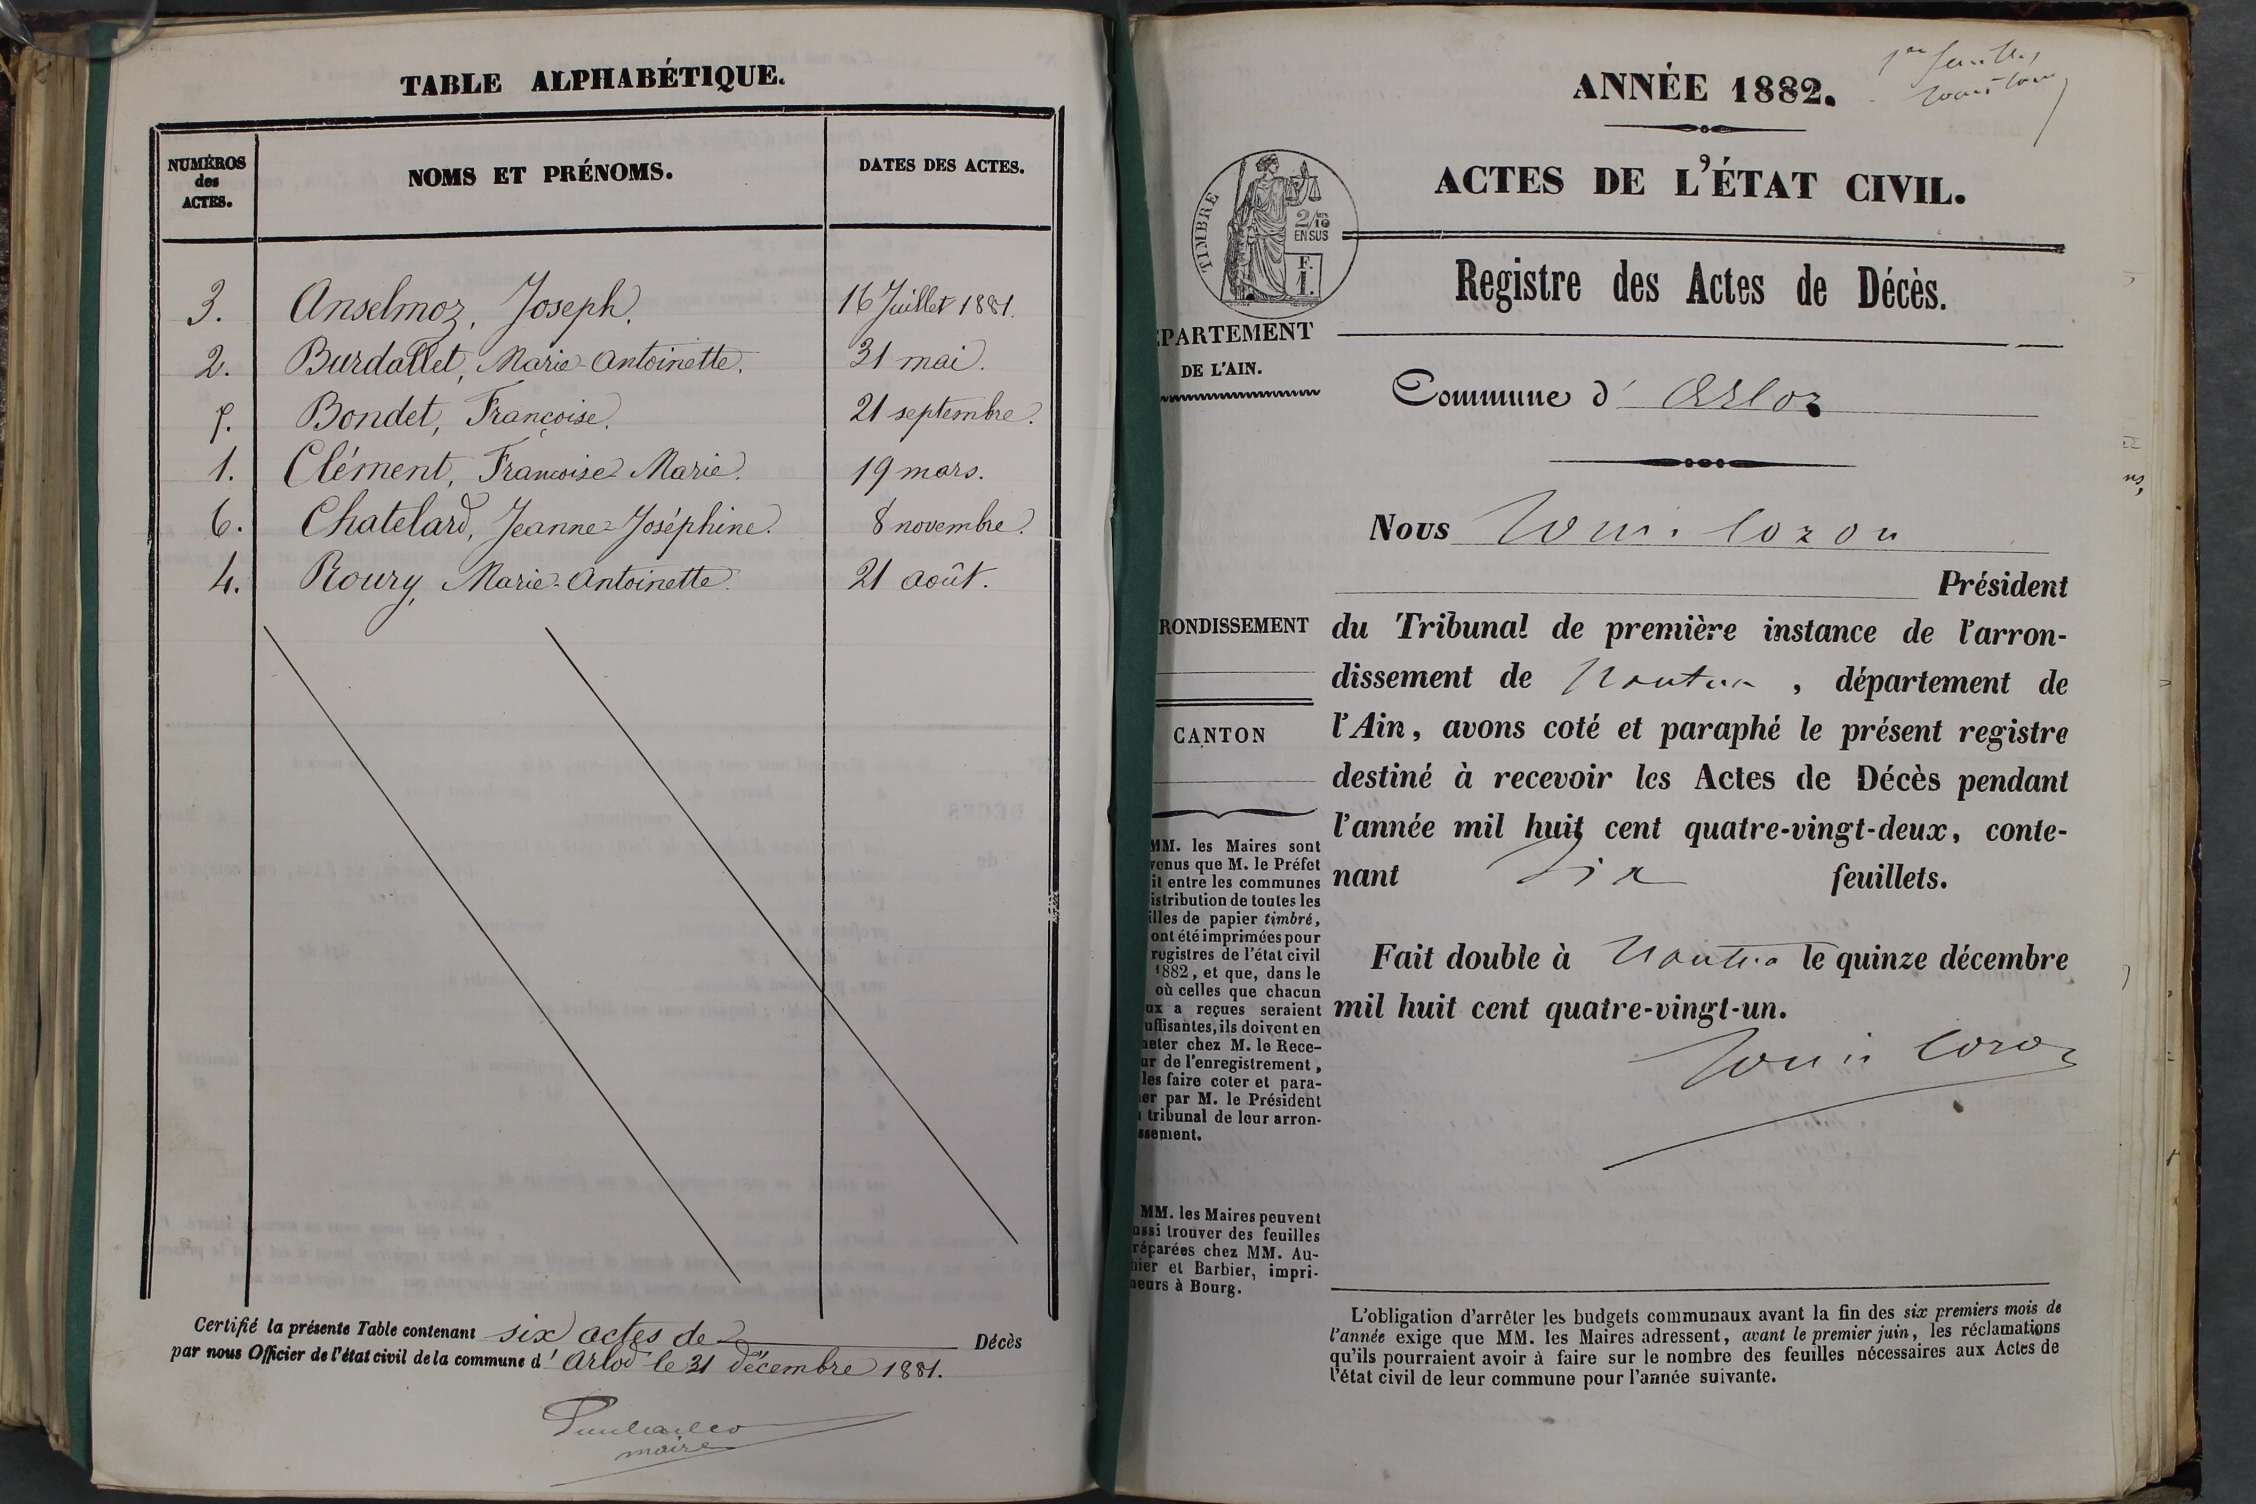 TABLE ALPHABÉTIQUE.
NUMÉROS des ACTES. NOMS ET PRÉNOMS. DATES DES ACTES.
3. Anselmoz, Joseph. 16 Juillet 1881.
2. Burdallet, Marie-Antoinette. 31 mai.
5. Bondet, Françoise. 21 septembre.
1. Clément, Françoise Marie. 19 mars.
6. Chatelard, Jeanne-Joséphine. 8 novembre.
4. Roury, Marie-Antoinette. 21 août.
Certifié la présente Table contenant six actes de Décès
par nous Officier de l'état civil de la commune d'Arlod le 31 décembre 1881.
maire
ANNÉE 1882.
ACTES DE L'ÉTAT CIVIL.
TIMBRE
2/10 EN SUS
F. 1.
Registre des Actes de Décès.
ÉPARTEMENT
DE L'AIN.
Commune d' Arloz
Nous Louis Cozon
Président
RONDISSEMENT
du Tribunal de première instance de l'arron-
dissement de Nantua, département de
l'Ain, avons coté et paraphé le présent registre
CANTON
destiné à recevoir les Actes de Décès pendant
l'année mil huit cent quatre-vingt-deux, conte-
nant six feuillets.
Fait double à Nantua le quinze décembre
mil huit cent quatre-vingt-un.
Louis Cozon
MM. les Maires sont
venus que M. le Préfet
it entre les communes
istribution de toutes les
illes de papier timbré,
ont été imprimées pour
registres de l'état civil
1882, et que, dans le
où celles que chacun
ux a reçues seraient
uffisantes, ils doivent en
heter chez M. le Rece-
ur de l'enregistrement,
les faire coter et para-
her par M. le Président
tribunal de leur arron-
ssement.
MM. les Maires peuvent
ussi trouver des feuilles
réparées chez MM. Au-
hier et Barbier, impri-
meurs à Bourg.
L'obligation d'arrêter les budgets communaux avant la fin des six premiers mois de
l'année exige que MM. les Maires adressent, avant le premier juin, les réclamations
qu'ils pourraient avoir à faire sur le nombre des feuilles nécessaires aux Actes de
l'état civil de leur commune pour l'année suivante.